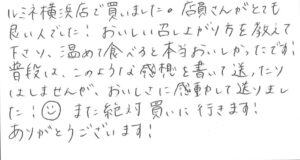 ルミネ横浜店で買いました。店員さんがとても
良い人でした！おいしい召し上がり方を教えて
下さり、温めて食べると本当おいしかったです！
普段は、このような感想を書いて送ったり
はしませんが、おいしさに感動して送りまし
た！☺ また絶対買いに行きます！
ありがとうございます！